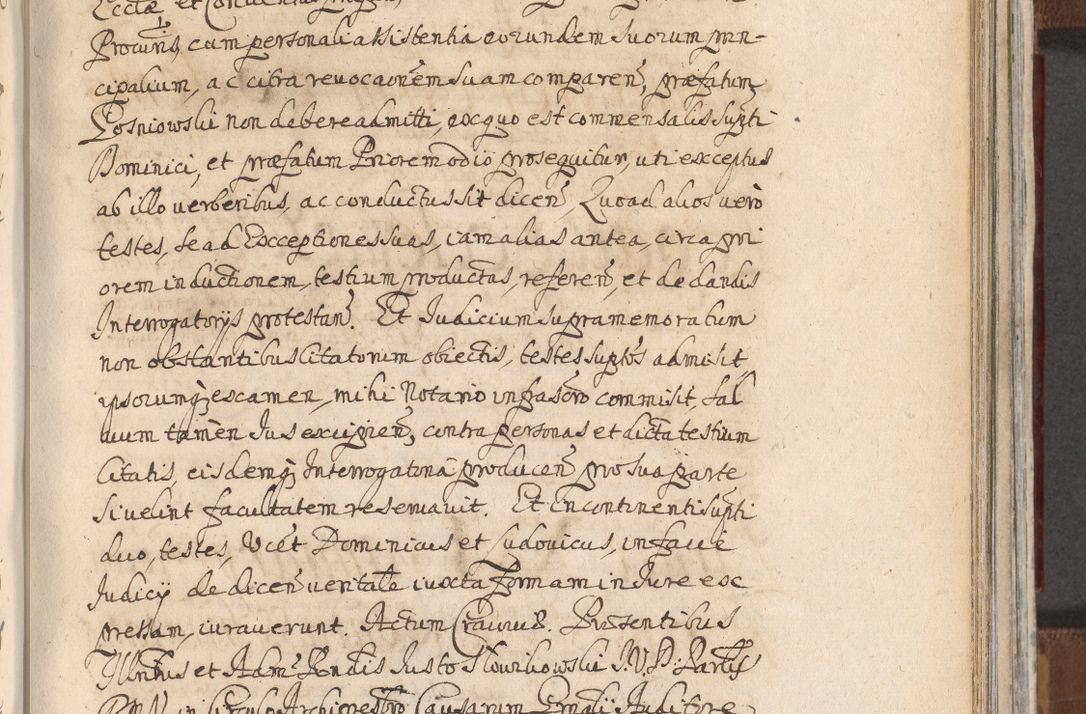 Ecclæ et Conventus
Procuris, cum personali assistentia eorundem suorum prin-
cipalium, ac citra revocaonem suam comparen, præfatum
Posniowski non debere admitti, ex quo est commensalis supti
Dominici, et præfatum Priorem odio prosequitur, uti exceptus
ab illo verberibus, ac conductus sit dicen, Quoad alios vero
testes, se ad Exceptiones suas, iam alias antea, circa pri
orem inductionem, testium productas, referen, et de dandis
Interrogatorijs protestan. Et Judicium supramemoratum
non obstantibus Citatorum obiectis, testes suptos admisit,
ipsorumq; examen, mihi Notario infrascro commisit, sal
vum tamen Jus excipien, contra personas et dicta testium
Citatis, eisdemq; Interrogatoria producen pro sua parte
si velint facultatem reservavit. Et in continenti supti
duo, testes, Vcet Dominicus et Ludovicus, in facie
Judicij de dicen veritate iuxta formam in Jure ex
pressam, iuraverunt. Actum Cracoviæ. Præsentibus
Illribus et Adm Rndis Justo Slowikowski J.V.D. Partis
in Circulo Archipresbro Causarum Gnali Auditore